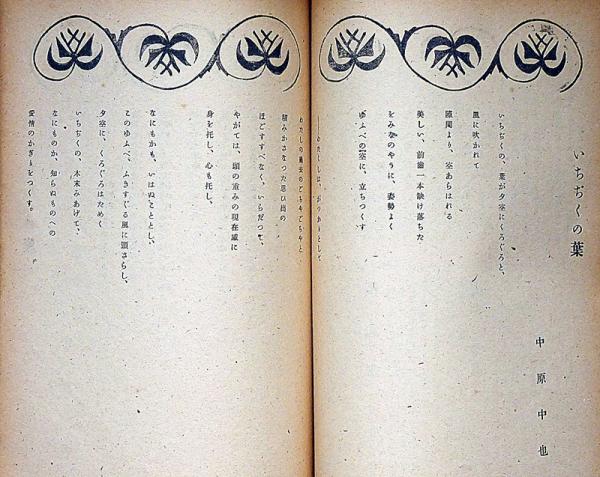 いちぢくの葉
中原中也
いちぢくの、葉が夕空にくろぐろと、
風に吹かれて
隙間より、空あらはれる
美しい、前歯一本欠け落ちた
をみなのやうに、姿勢よく
ゆふべの空に、立ちつくす
――わたくしは、がつかりとして
わたしの過去のごちやごちやと
積みかさなつた思ひ出の
ほごすすべなく、いらだつて、
やがては、頭の重みの現在感に
身を托し、心も托し、
なにもかも、いはぬこととし、
このゆふべ、ふきすぐる風に頸さらし、
夕空に、くろぐろはためく
いちぢくの、木末みあげて、
なにものか、知らぬものへの
愛情のかぎりをつくす。